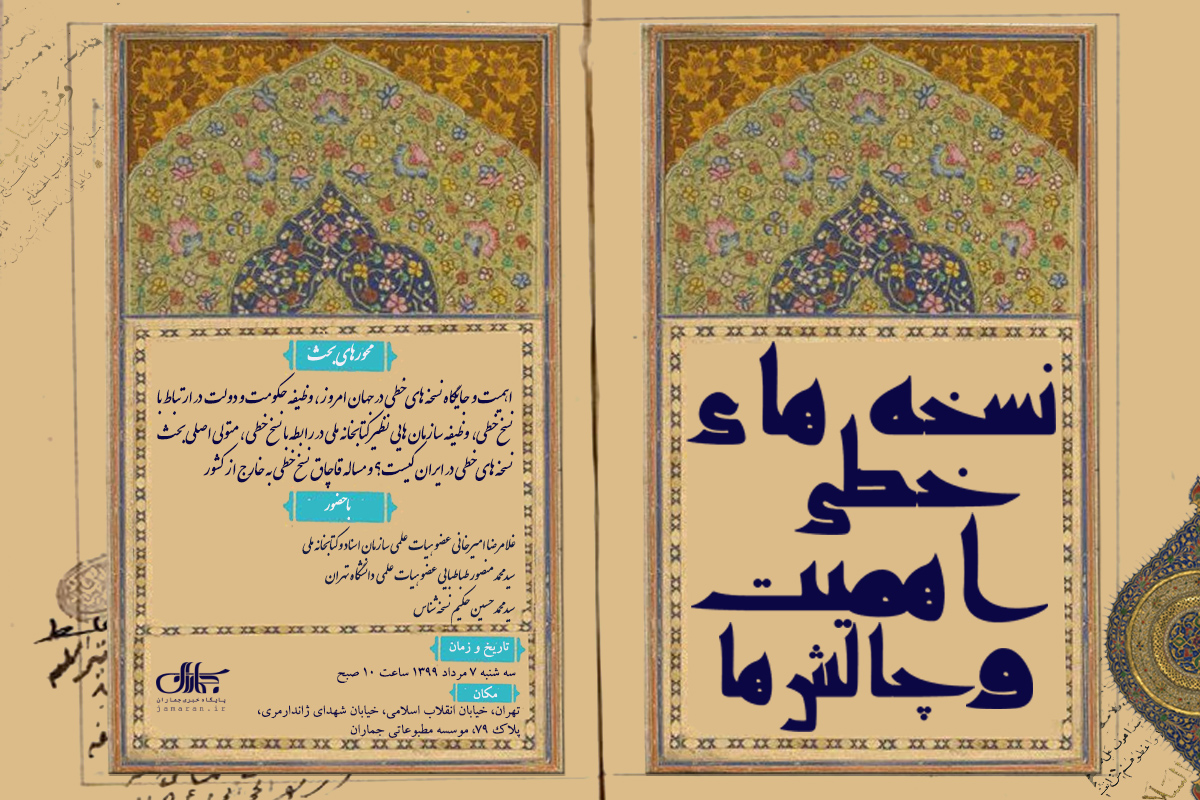 نسخه های
خطی
اهمیت
و چالش ها
محورهای بحث
اهمیت و جایگاه نسخه های خطی در جهان امروز، وظیفه حکومت و دولت در ارتباط با
نسخ خطی، وظیفه سازمان هایی نظیر کتابخانه ملی در رابطه با نسخ خطی، متولی اصلی بحث
نسخه های خطی در ایران کیست؟ و مساله قاچاق نسخ خطی به خارج از کشور
با حضور
غلامرضا امیرخانی عضو هیات علمی سازمان اسناد و کتابخانه ملی
سید محمد منصور طباطبایی عضو هیات علمی دانشگاه تهران
سید محمد حسین حکیم نسخه شناس
تاریخ و زمان
سه شنبه ۷ مرداد ۱۳۹۹ ساعت ۱۰ صبح
مکان
تهران، خیابان انقلاب اسلامی، خیابان شهدای ژاندارمری،
پلاک ۷۹، موسسه مطبوعاتی جماران
جماران
پایگاه خبری جماران
jamaran.ir